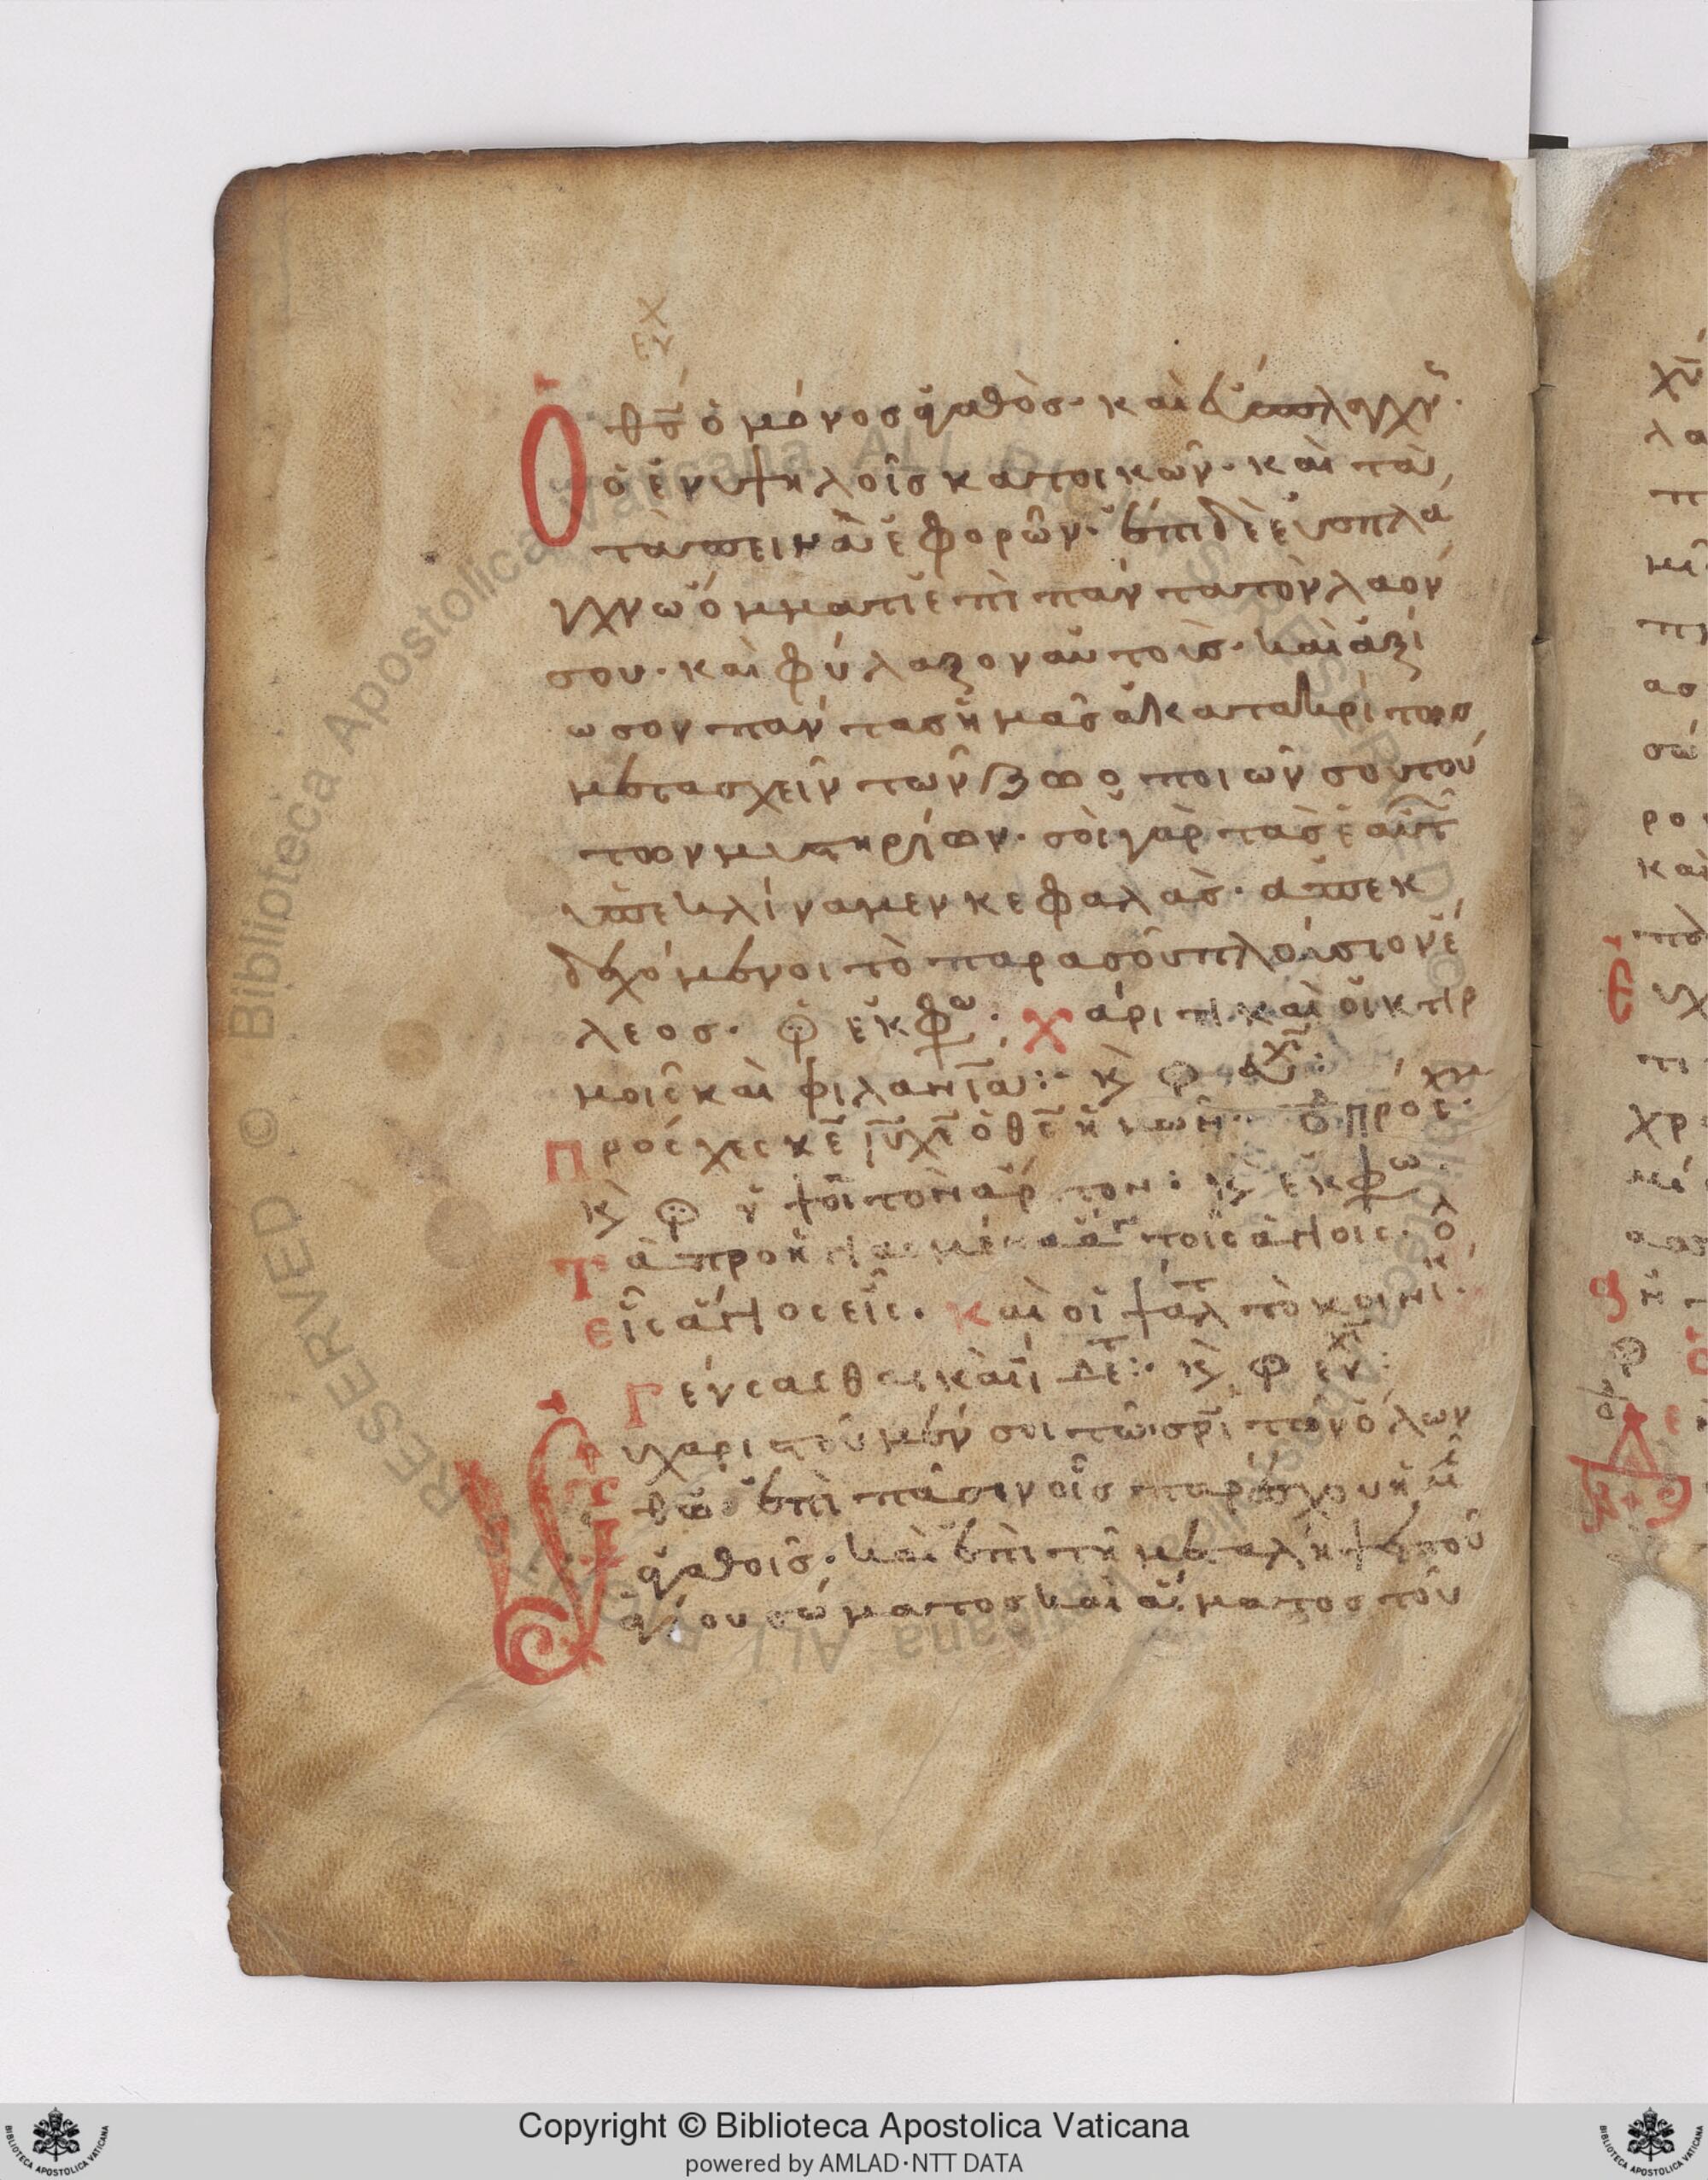 Χ
ΕΥ
Ὁ θ̅ς̅ ὁ μόνος ἀγαθὸς· καὶ εὔσπλαγχν̅·
ὁ ἐν υψηλοῖς κατοικῶν· καὶ τὰ
ταπεινὰ ἐφορῶν· ἔπιδε εὐσπλά
γχνω ὄμματι ἐπὶ πάντα τὸν λαόν
σου· καὶ φύλαξον αὐτοὺς· καὶ ἀξί
ωσον πάντας ἡμᾶς ἀκατακρίτως
μετασχεῖν τῶν ζωοποιῶν σου τού
των μυστηρίων· σοὶ γὰρ τὰς ἑαυτ̅
ὑπεκλίναμεν κεφαλὰς· ἀπεκ
δεχόμενοι τὸ παρα σοῦ πλούσιον ἔ
λεος· ἐκφω: Χάριτι και οἰκτιρ
μοῖς καὶ φιλανι̅α:
Πρόσχες κ̅ε̅ ι̅υ̅ χ̅ε̅ ὁ θ̅ε̅ ἡμῶν·
ὑψοῖ τὸν ἄρτον: κ, ἐκφω
Τὰ προηγιασμένα ἅγια τοῖς ἁγίοις· ὁ λ
Εἷς ἅγιος εἷς· Καὶ οἱ ψάλτ τὸ κοινι·
Γεύσασθαι καὶ ἴδετ:
Εὐχαριστοῦμέν σοι τῶ σρ̅ι τῶν ὅλων
θω̅· ἐπὶ πᾶσιν οἷς παρέσχου ἡμ̅
ἀγαθοῖς· καὶ ἐπὶ τῆ μεταλήψει τοῦ
ἁγίου σώματος καὶ αἵματος τοῦ
Copyright © Biblioteca Apostolica Vaticana
powered by AMLAD·NTT DATA